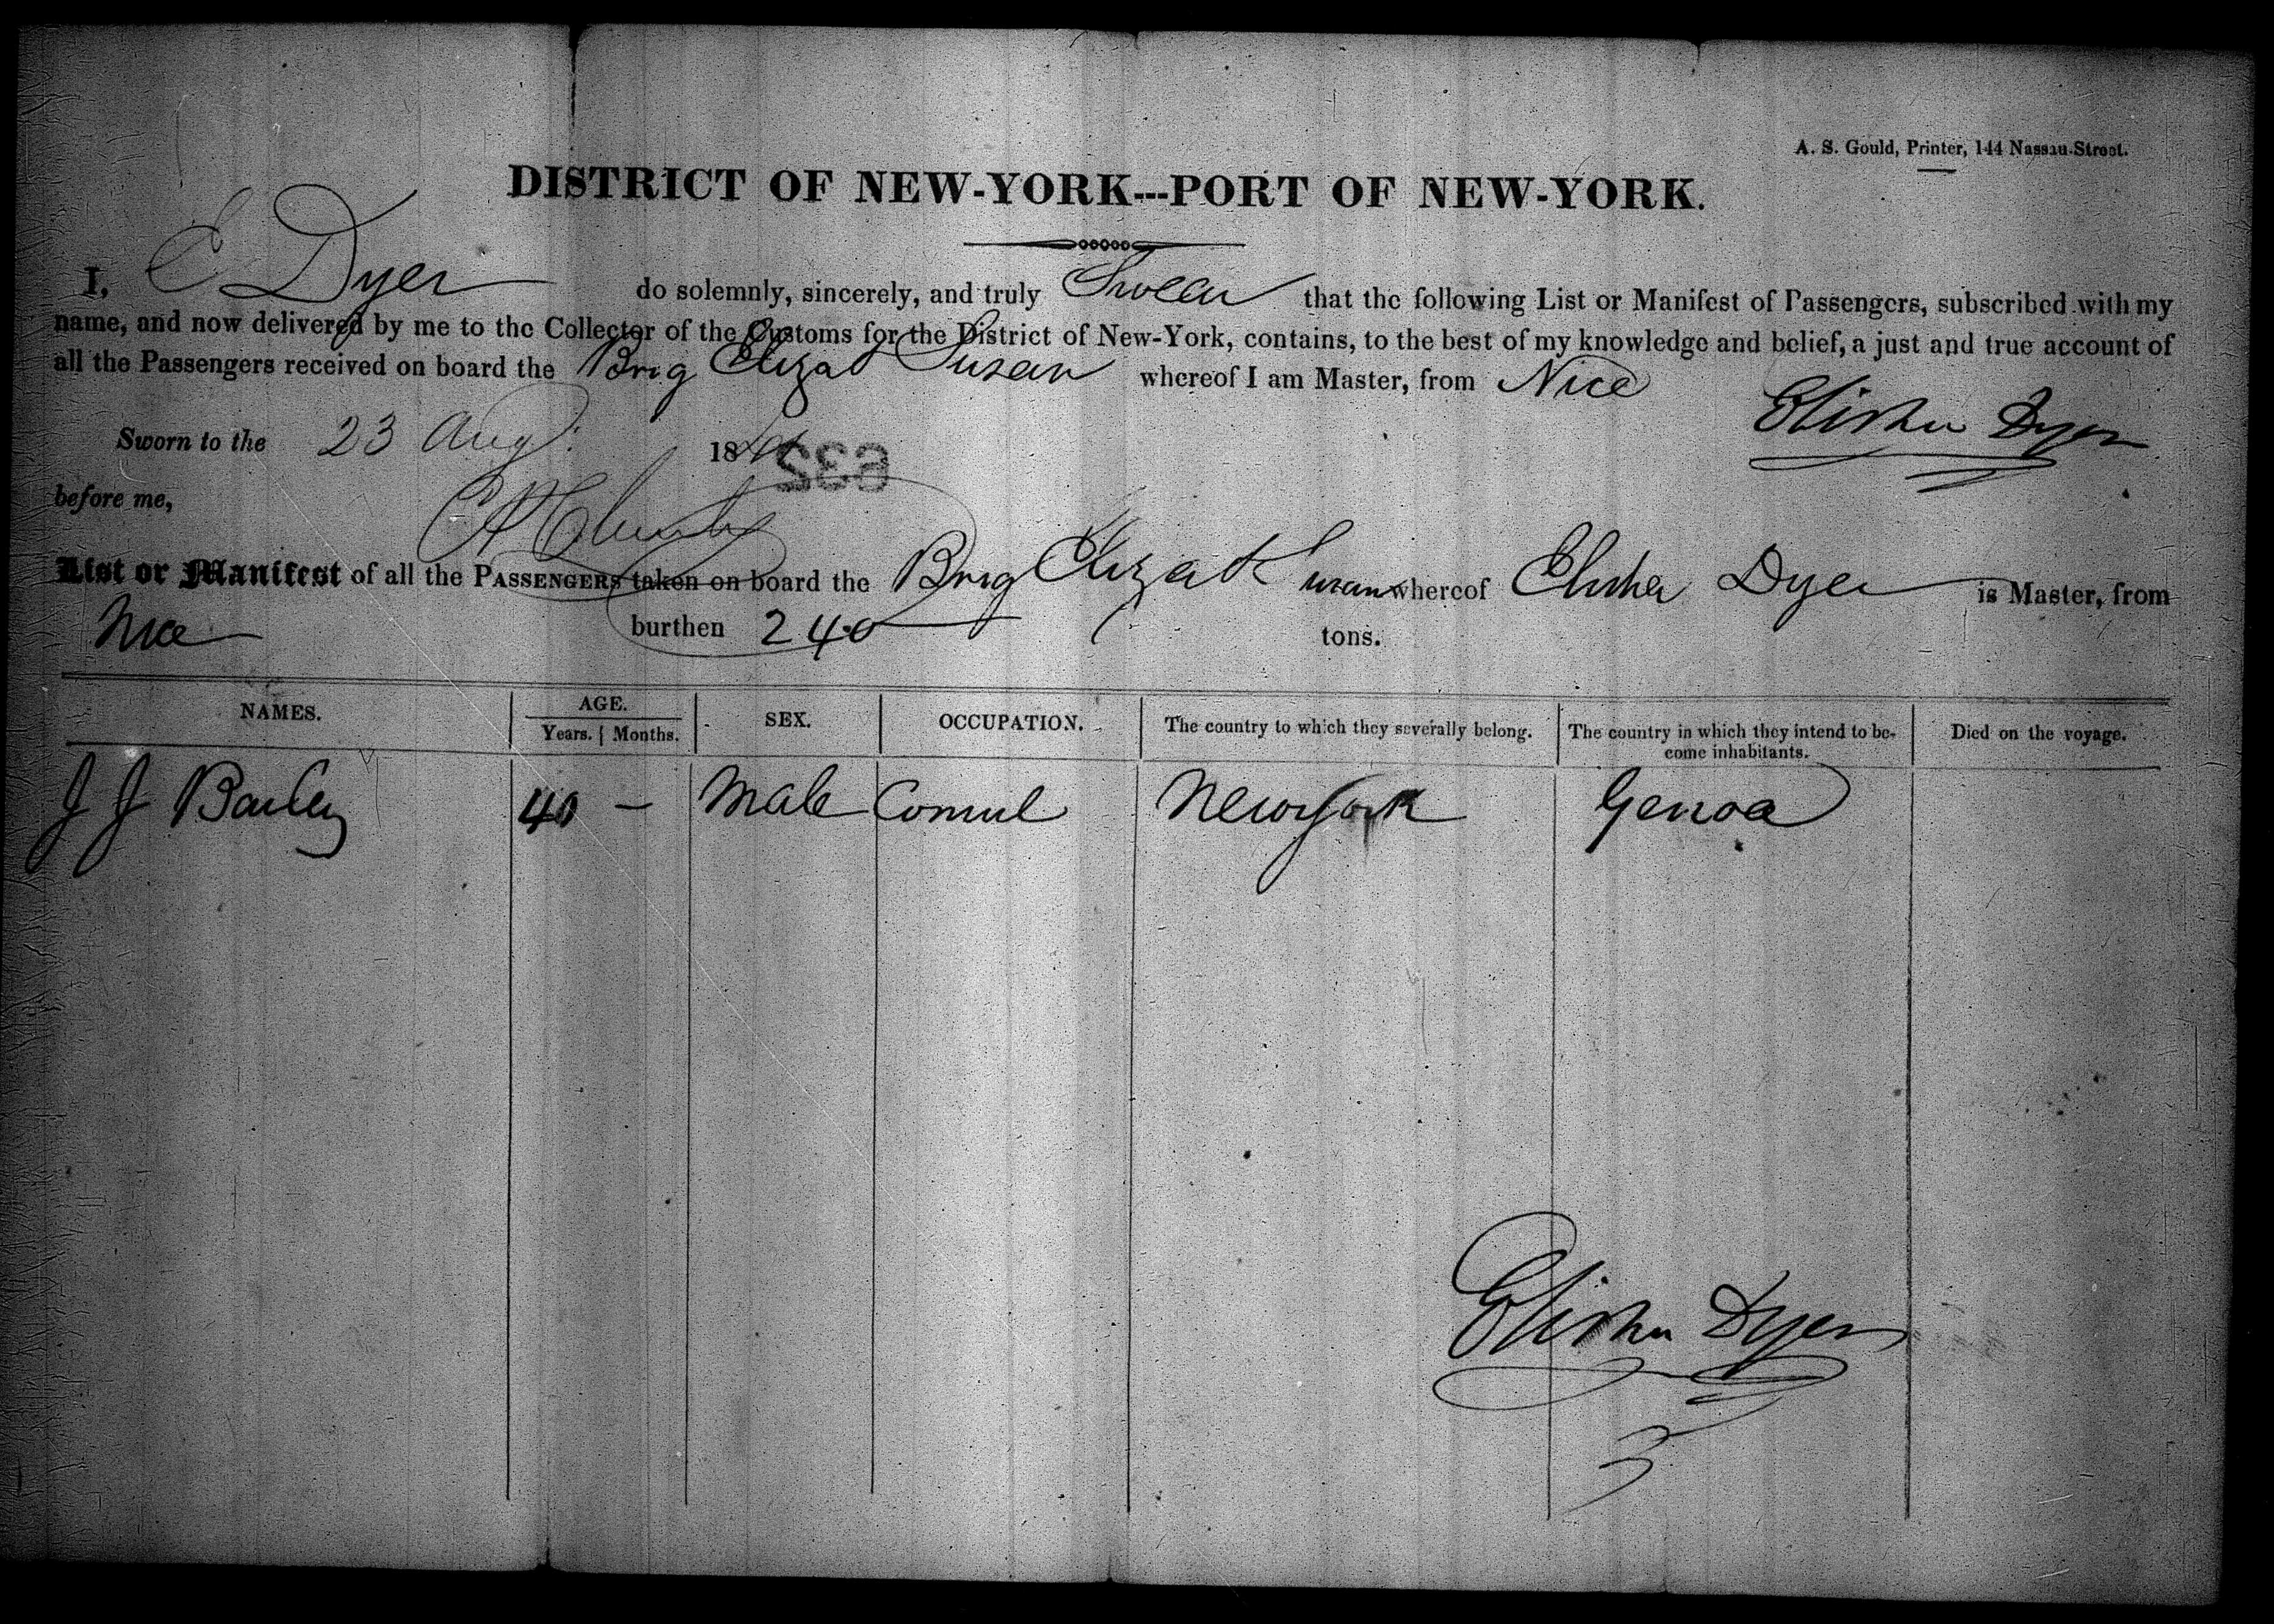 A. S. Gould, Printer, 144 Nassau-Street.
DISTRICT OF NEW-YORK---PORT OF NEW-YORK.
I, E Dyer do solemnly, sincerely, and truly Swear that the following List or Manifest of Passengers, subscribed with my
name, and now delivered by me to the Collector of the Customs for the District of New-York, contains, to the best of my knowledge and belief, a just and true account of
all the Passengers received on board the Brig Eliza & Susan whereof I am Master, from Nice
Elisha Dyer
Sworn to the 23 Aug. 18
632
before me,
List or Manifest of all the PASSENGERS taken on board the Brig Eliza & Susan whereof Elisha Dyer is Master, from
Nice burthen 240 tons.
NAMES. AGE. SEX. OCCUPATION. The country to which they severally belong. The country in which they intend to be- Died on the voyage.
Years. Months. come inhabitants.
J J Bailey 40 — Male Consul New York Genoa
Elisha Dyer